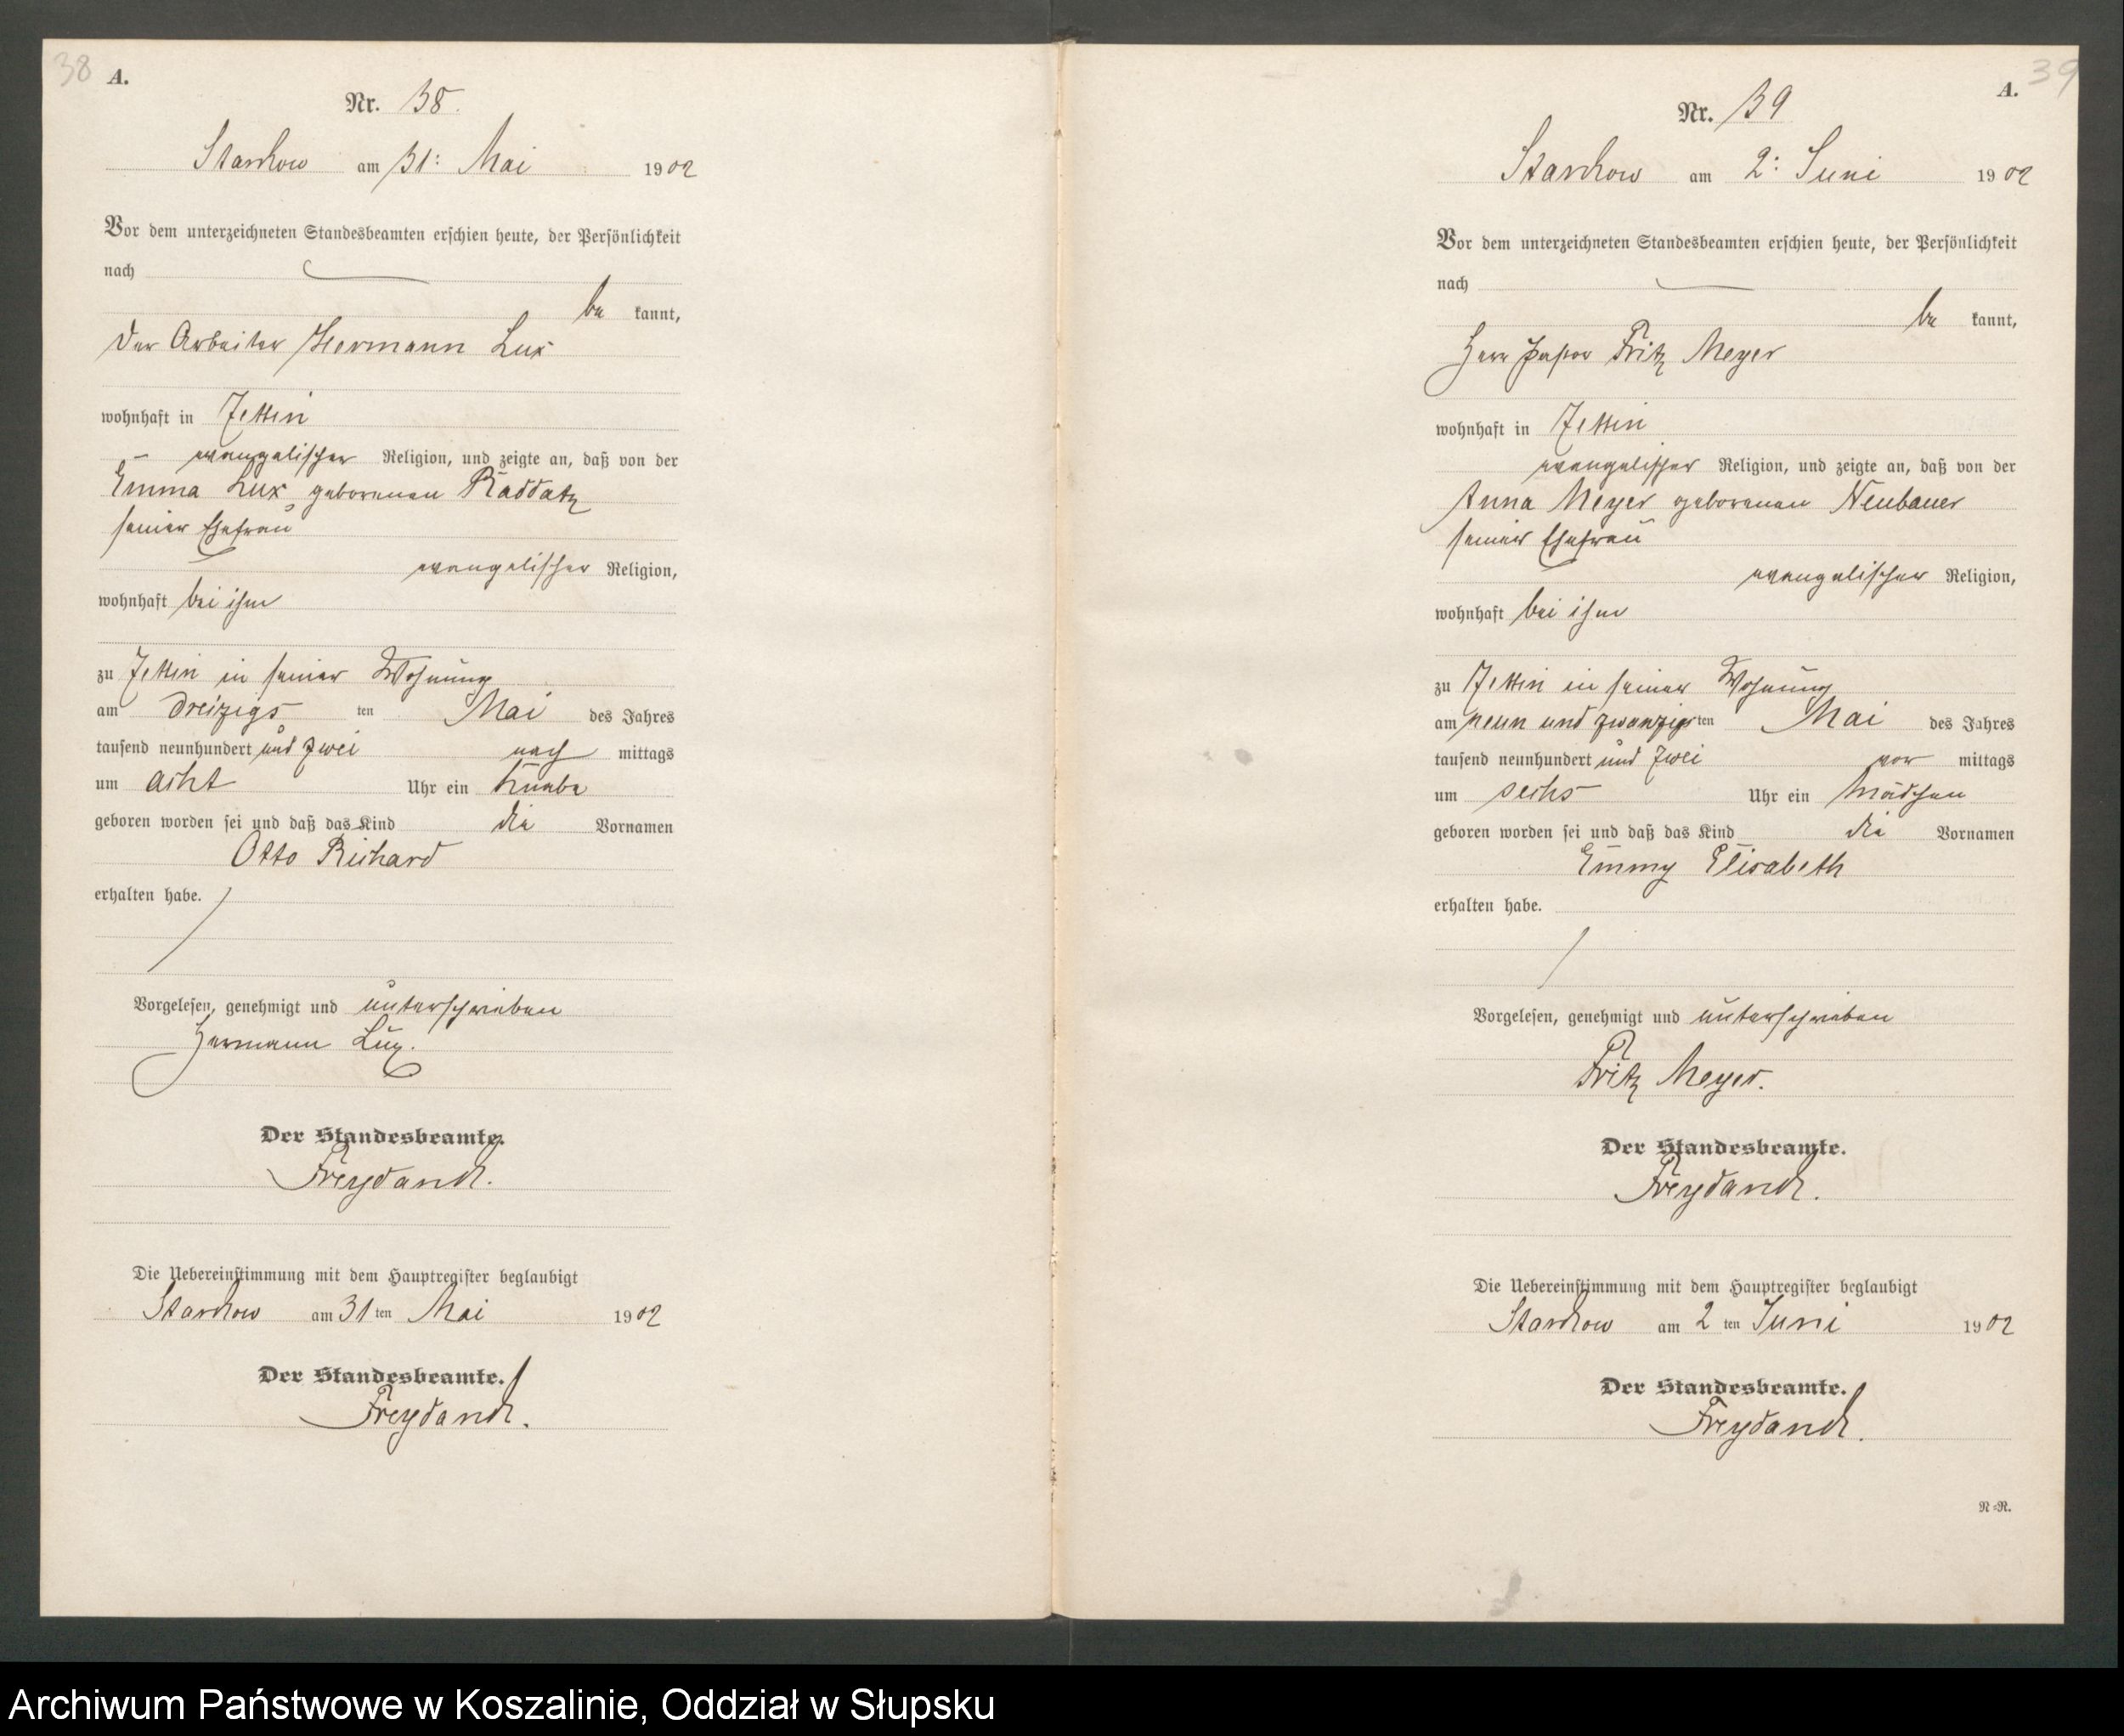 38 A.
Nr. 38.
Starckow am 31: Mai 1902
Vor dem unterzeichneten Standesbeamten erschien heute, der Persönlichkeit
nach
be kannt,
der Arbeiter Hermann Lux
wohnhaft in Zettin
evangelischer Religion, und zeigte an, daß von der
Emma Lux geborenen Raddatz
seiner Ehefrau
evangelischer Religion,
wohnhaft bei ihm
zu Zettin in seiner Wohnung
am dreizigs ten Mai des Jahres
tausend neunhundert und zwei nach mittags
um acht Uhr ein Knabe
geboren worden sei und daß das Kind die Vornamen
Otto Richard
erhalten habe.
Vorgelesen, genehmigt und unterschrieben
Hermann Lux.
Der Standesbeamte.
Freydanck.
Die Uebereinstimmung mit dem Hauptregister beglaubigt
Starckow am 31 ten Mai 1902
Der Standesbeamte.
Freydanck.
A. 39
Nr. 39
Starckow am 2: Juni 1902
Vor dem unterzeichneten Standesbeamten erschien heute, der Persönlichkeit
nach
be kannt,
Herr Pastor Fritz Meyer
wohnhaft in Zettin
evangelischer Religion, und zeigte an, daß von der
Anna Meyer geborenen Neubauer
seiner Ehefrau
evangelischer Religion,
wohnhaft bei ihm
zu Zettin in seiner Wohnung
am neun und zwanzigs ten Mai des Jahres
tausend neunhundert und zwei vor mittags
um sechs Uhr ein Mädchen
geboren worden sei und daß das Kind die Vornamen
Emmy Elisabeth
erhalten habe.
Vorgelesen, genehmigt und unterschrieben
Fritz Meyer.
Der Standesbeamte.
Freydanck.
Die Uebereinstimmung mit dem Hauptregister beglaubigt
Starckow am 2 ten Juni 1902
Der Standesbeamte.
Freydanck.
R=R.
Archiwum Państwowe w Koszalinie, Oddział w Słupsku